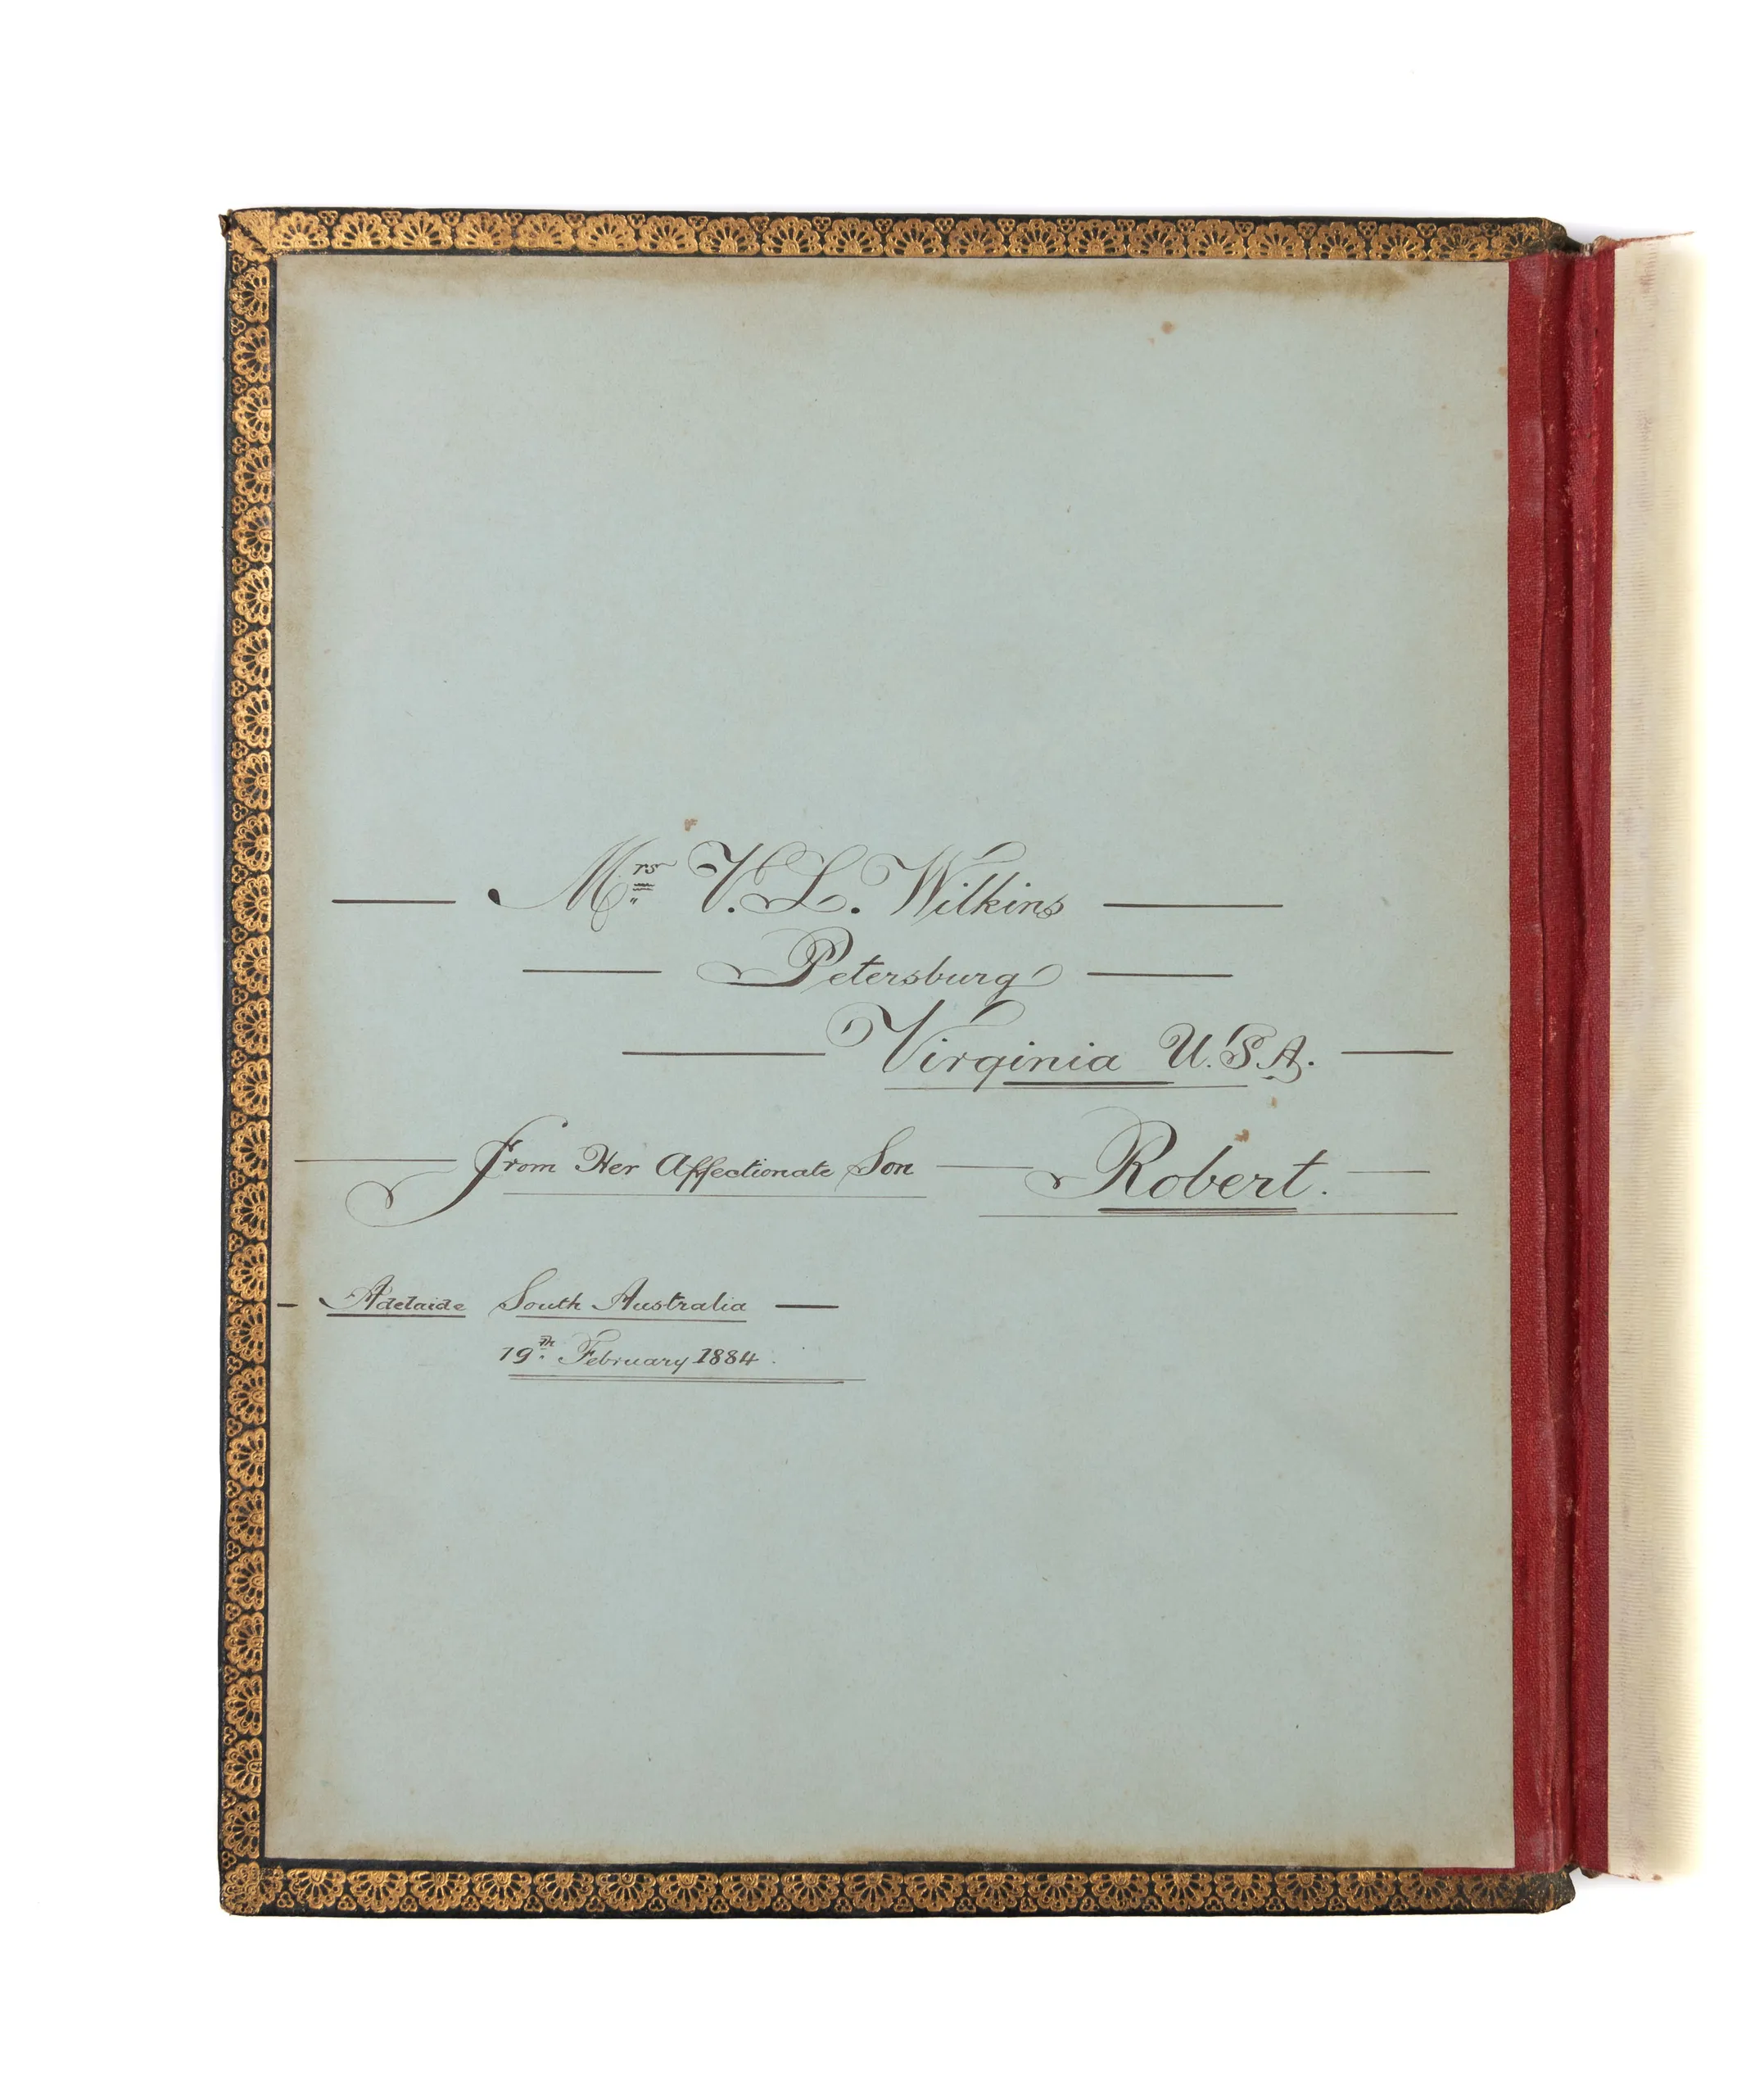 Mrs V. L. Wilkins
Petersburg
Virginia U.S.A.
From Her Affectionate Son Robert.
Adelaide South Australia
19th February 1884.